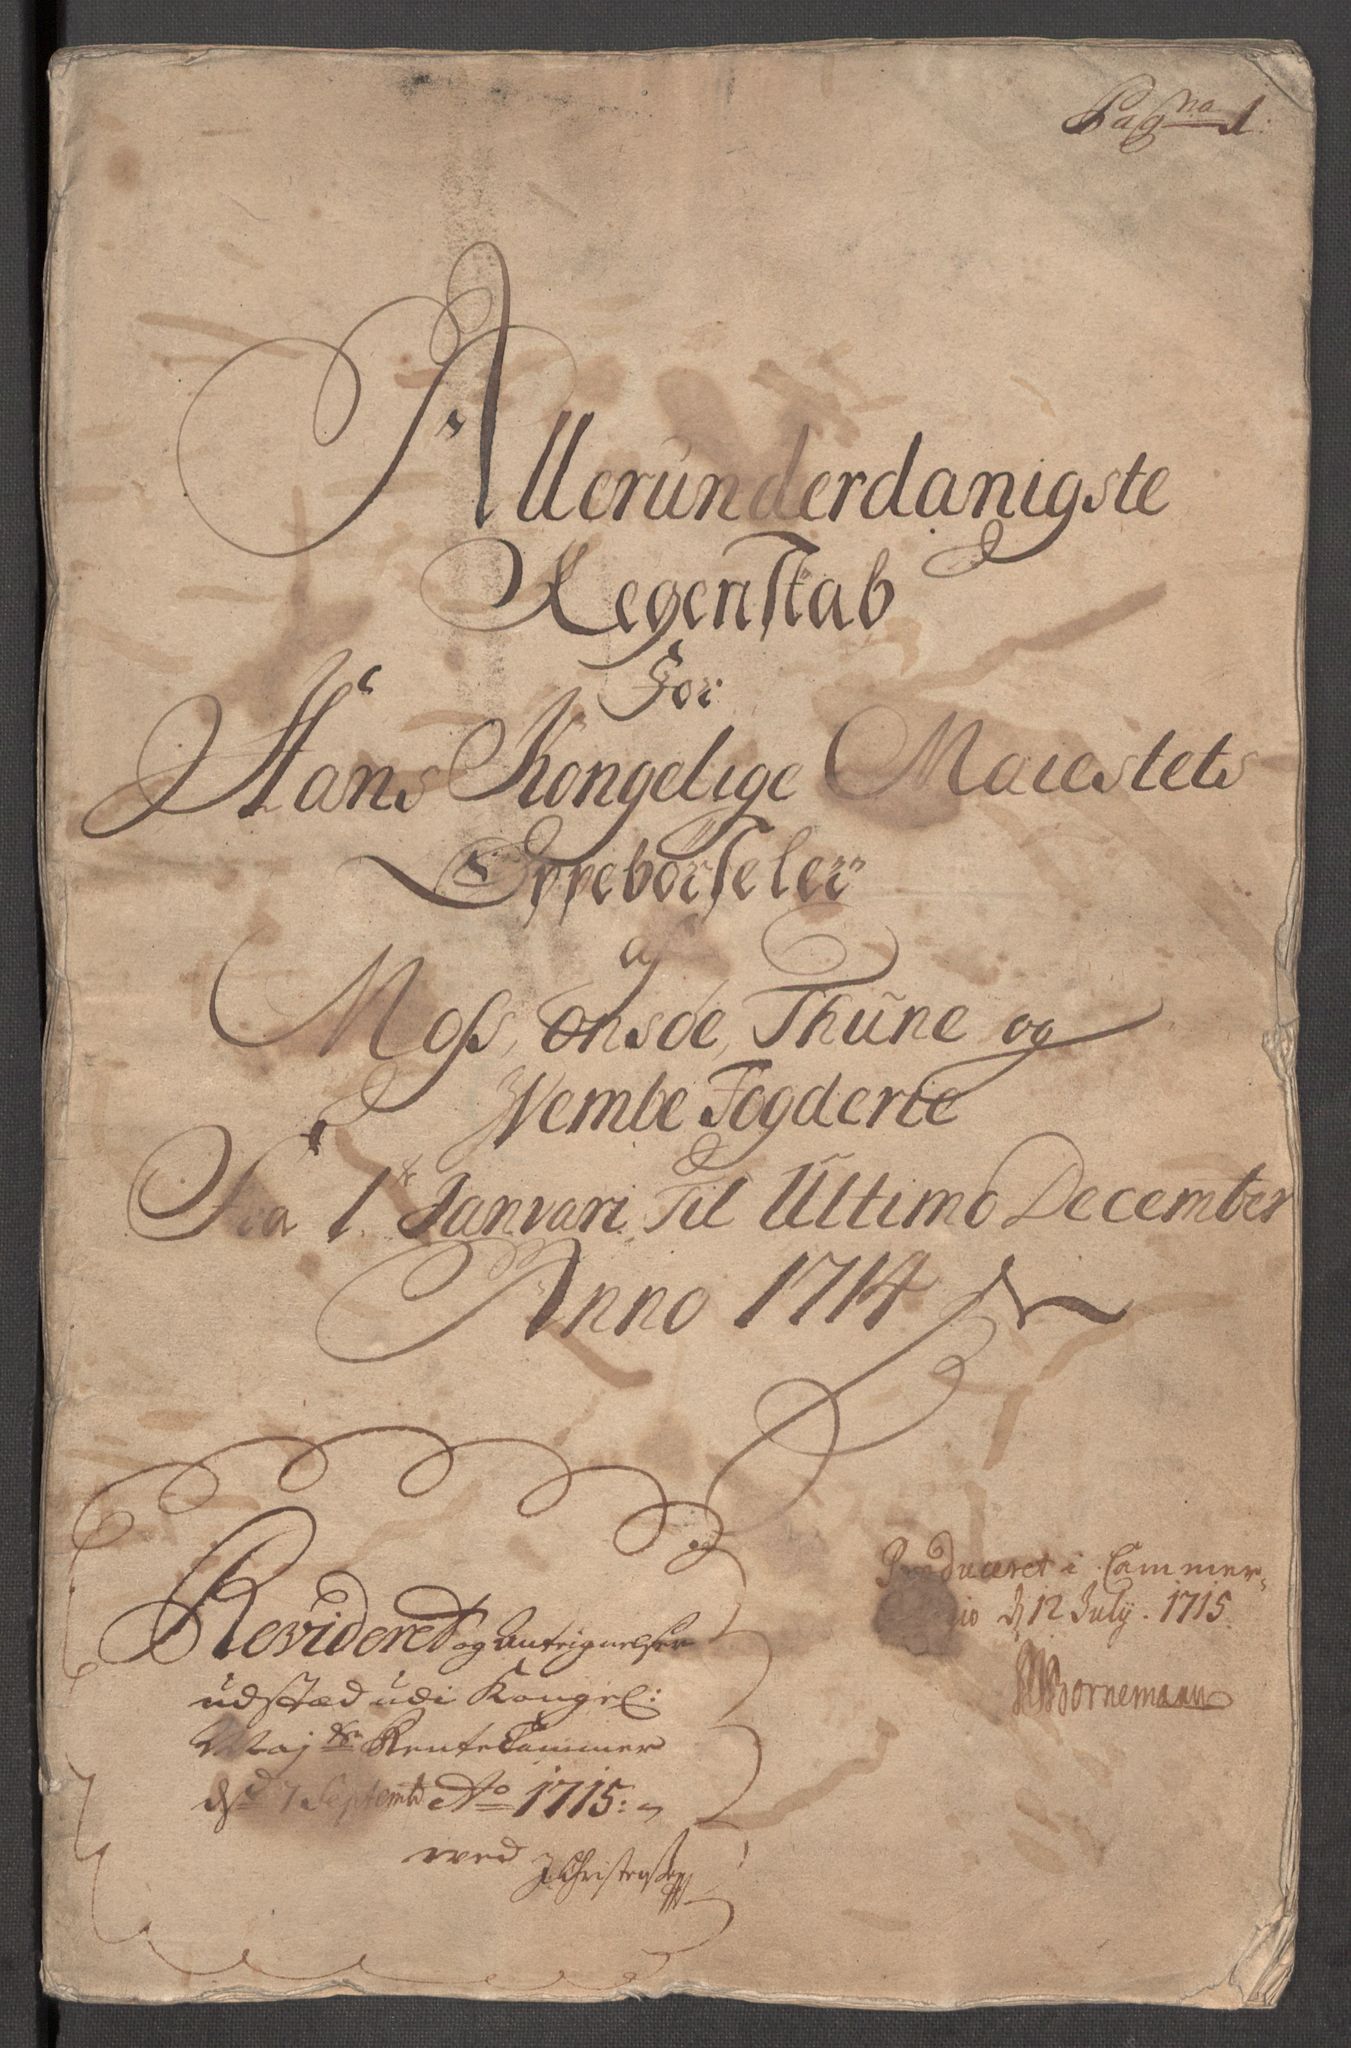 Pag na 1.
Allerunderdanigste
Regenskab
For
Hans Kongelige Maiestets
Oppebørseler
af
Moss, Onsøe, Thüne og
Vembe Fogderie
Fra 1. Janvari Til Ultimo December
Anno 1714
Revideret og Anteignelser
udstæd udi Kongel:
Maj ts Rente Cammer
d. 7 Septemb Ao 1715:
ved J Christensen
Produceret i Cammer-
d 12 July. 1715
Bornemann